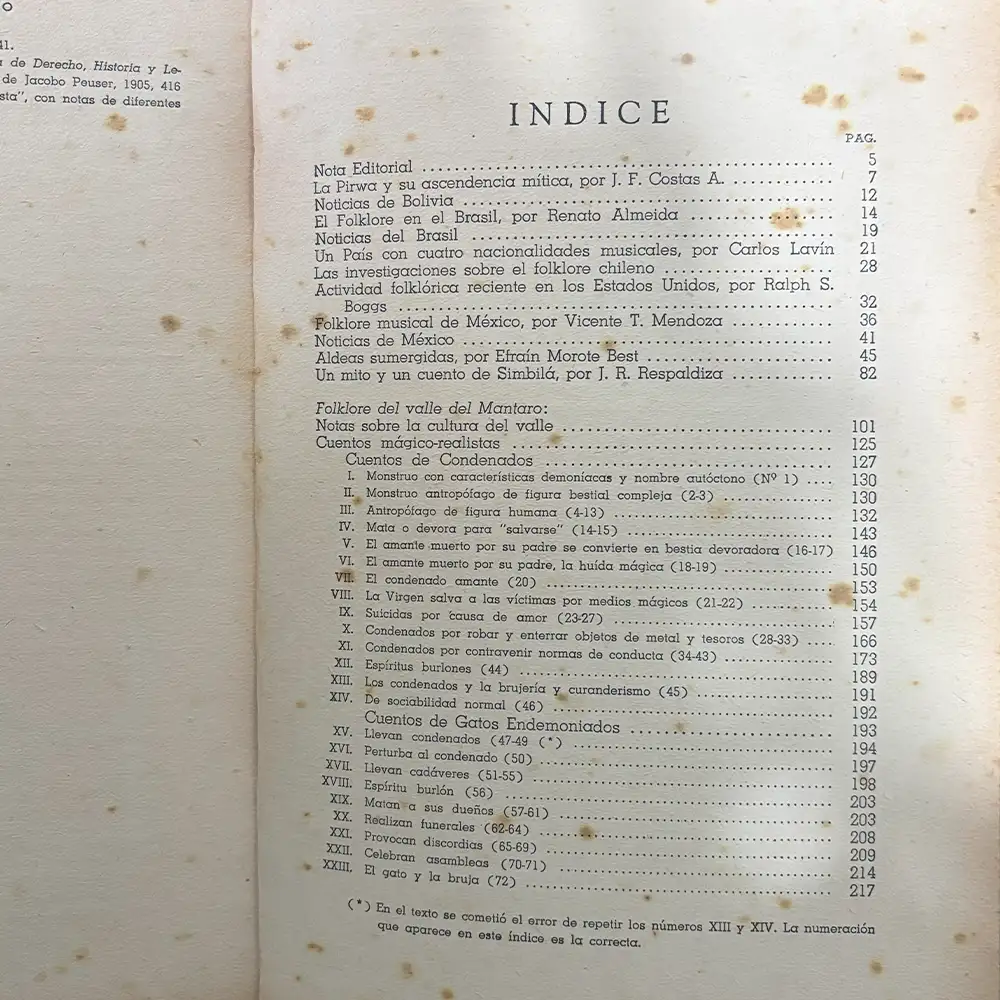 O
41.
de Derecho, Historia y Le-
de Jacobo Peuser, 1905, 416
sta", con notas de diferentes
INDICE
PAG.
Nota Editorial ........ 5
La Pirwa y su ascendencia mítica, por J. F. Costas A. ........ 7
Noticias de Bolivia ........ 12
El Folklore en el Brasil, por Renato Almeida ........ 14
Noticias del Brasil ........ 19
Un País con cuatro nacionalidades musicales, por Carlos Lavín 21
Las investigaciones sobre el folklore chileno ........ 28
Actividad folklórica reciente en los Estados Unidos, por Ralph S.
Boggs ........ 32
Folklore musical de México, por Vicente T. Mendoza ........ 36
Noticias de México ........ 41
Aldeas sumergidas, por Efraín Morote Best ........ 45
Un mito y un cuento de Simbilá, por J. R. Respaldiza ........ 82
Folklore del valle del Mantaro:
Notas sobre la cultura del valle ........ 101
Cuentos mágico-realistas ........ 125
Cuentos de Condenados ........ 127
I. Monstruo con características demoníacas y nombre autóctono (Nº 1) .... 130
II. Monstruo antropófago de figura bestial compleja (2-3) ........ 130
III. Antropófago de figura humana (4-13) ........ 132
IV. Mata o devora para "salvarse" (14-15) ........ 143
V. El amante muerto por su padre se convierte en bestia devoradora (16-17) 146
VI. El amante muerto por su padre, la huída mágica (18-19) ........ 150
VII. El condenado amante (20) ........ 153
VIII. La Virgen salva a las víctimas por medios mágicos (21-22) ........ 154
IX. Suicidas por causa de amor (23-27) ........ 157
X. Condenados por robar y enterrar objetos de metal y tesoros (28-33) ..... 166
XI. Condenados por contravenir normas de conducta (34-43) ........ 173
XII. Espíritus burlones (44) ........ 189
XIII. Los condenados y la brujería y curanderismo (45) ........ 191
XIV. De sociabilidad normal (46) ........ 192
Cuentos de Gatos Endemoniados ........ 193
XV. Llevan condenados (47-49 (*) ........ 194
XVI. Perturba al condenado (50) ........ 197
XVII. Llevan cadáveres (51-55) ........ 198
XVIII. Espíritu burlón (56) ........ 203
XIX. Matan a sus dueños (57-61) ........ 203
XX. Realizan funerales (62-64) ........ 208
XXI. Provocan discordias (65-69) ........ 209
XXII. Celebran asambleas (70-71) ........ 214
XXIII. El gato y la bruja (72) ........ 217
(*) En el texto se cometió el error de repetir los números XIII y XIV. La numeración
que aparece en este índice es la correcta.